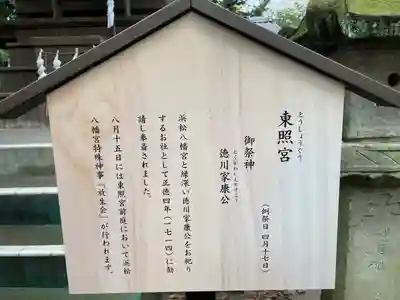 東照宮
とうしょうぐう
(例祭日 四月十七日)
御祭神
徳川家康公
とくがわいえやすこう
浜松八幡宮と縁深い徳川家康公をお祀り
するお社として正徳四年(一七一四)に勧
請し奉斎されました。
八月十五日には東照宮前庭において浜松
八幡宮特殊神事『放生会』が行われます。